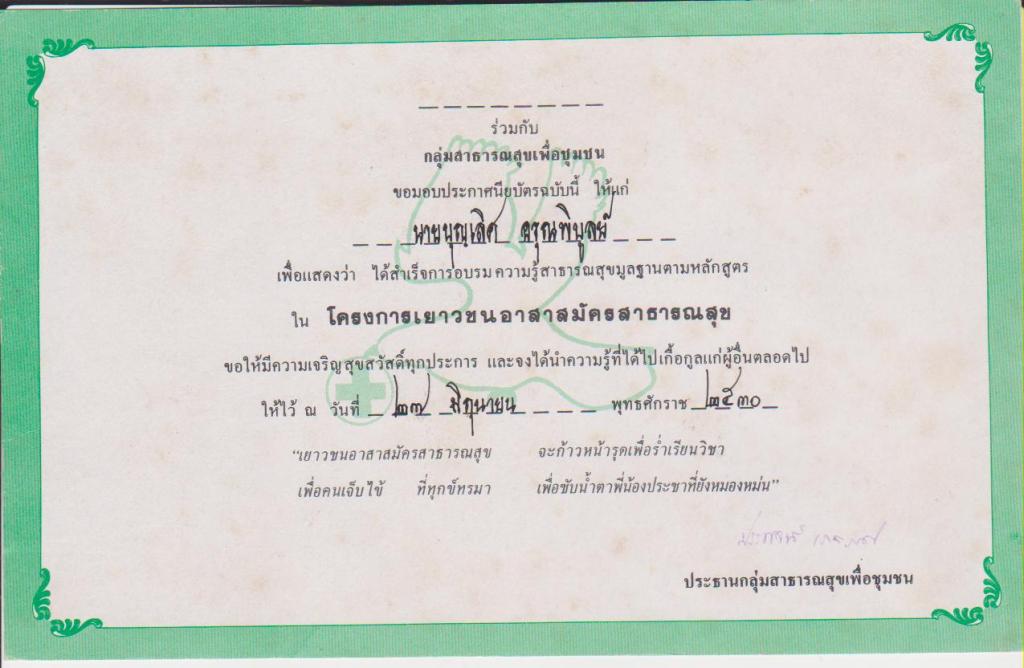 ร่วมกับ
กลุ่มสาธารณสุขเพื่อชุมชน
ขอมอบประกาศนียบัตรฉบับนี้ ให้แก่
นายบุญเลิศ อรุณพิบูลย์
เพื่อแสดงว่า ได้สำเร็จการอบรม ความรู้สาธารณสุขมูลฐานตามหลักสูตร
ใน โครงการเยาวชนอาสาสมัครสาธารณสุข
ขอให้มีความเจริญ สุขสวัสดิ์ทุกประการ และจงได้นำความรู้ที่ได้ไปเกื้อกูลแก่ผู้อื่นตลอดไป
ให้ไว้ ณ วันที่ ๒๗ มิถุนายน พุทธศักราช ๒๕๓๐
“เยาวชนอาสาสมัครสาธารณสุข จะก้าวหน้ารุดเพื่อร่ำเรียนวิชา
เพื่อคนเจ็บไข้ ที่ทุกข์ทรมา เพื่อซับน้ำตาพี่น้องประชาที่ยังหมองหม่น”
ประธานกลุ่มสาธารณสุขเพื่อชุมชน